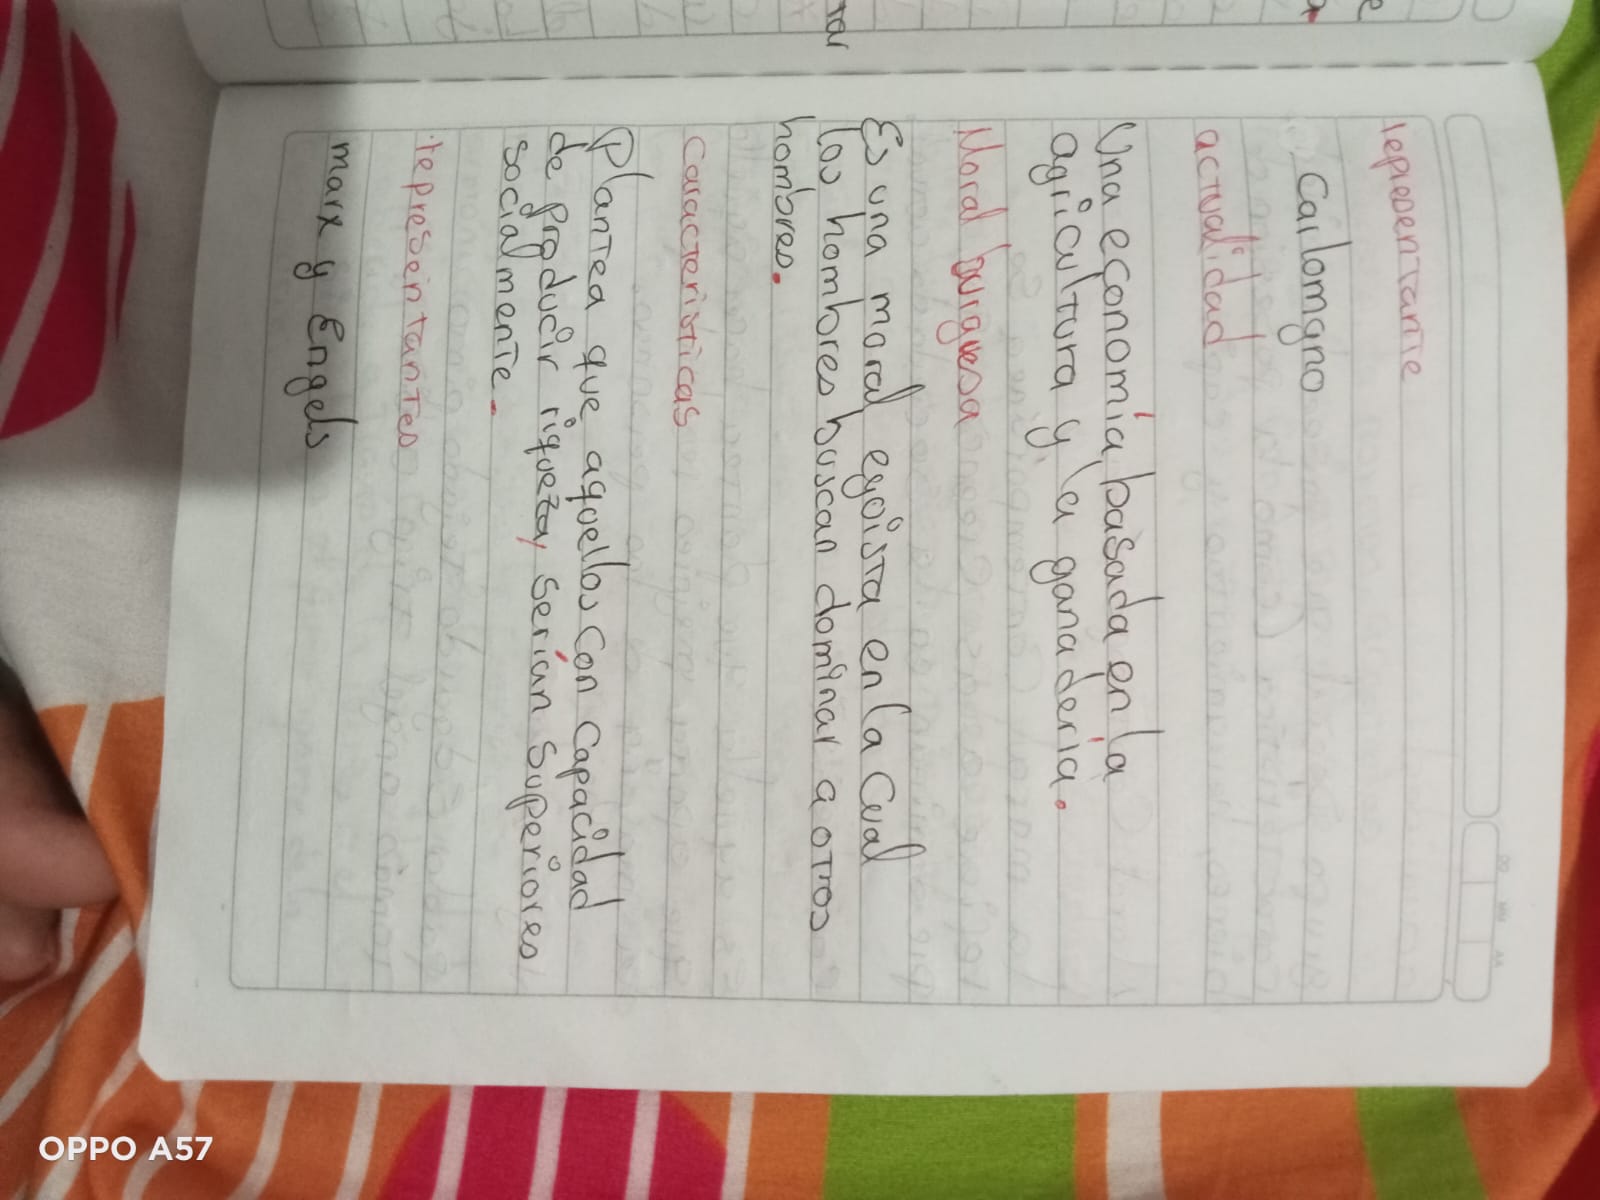 representante
Carlomgno
actualidad
Una economía, basada en la
agricultura y la ganadería.
Moral burguesa
Es una moral egoista en la cual
los hombres buscan dominar a otros
hombres.
características
Plantea que aquellos con capacidad
de producir riqueza, serían superiores
socialmente.
representantes
marx y Engels
OPPO A57